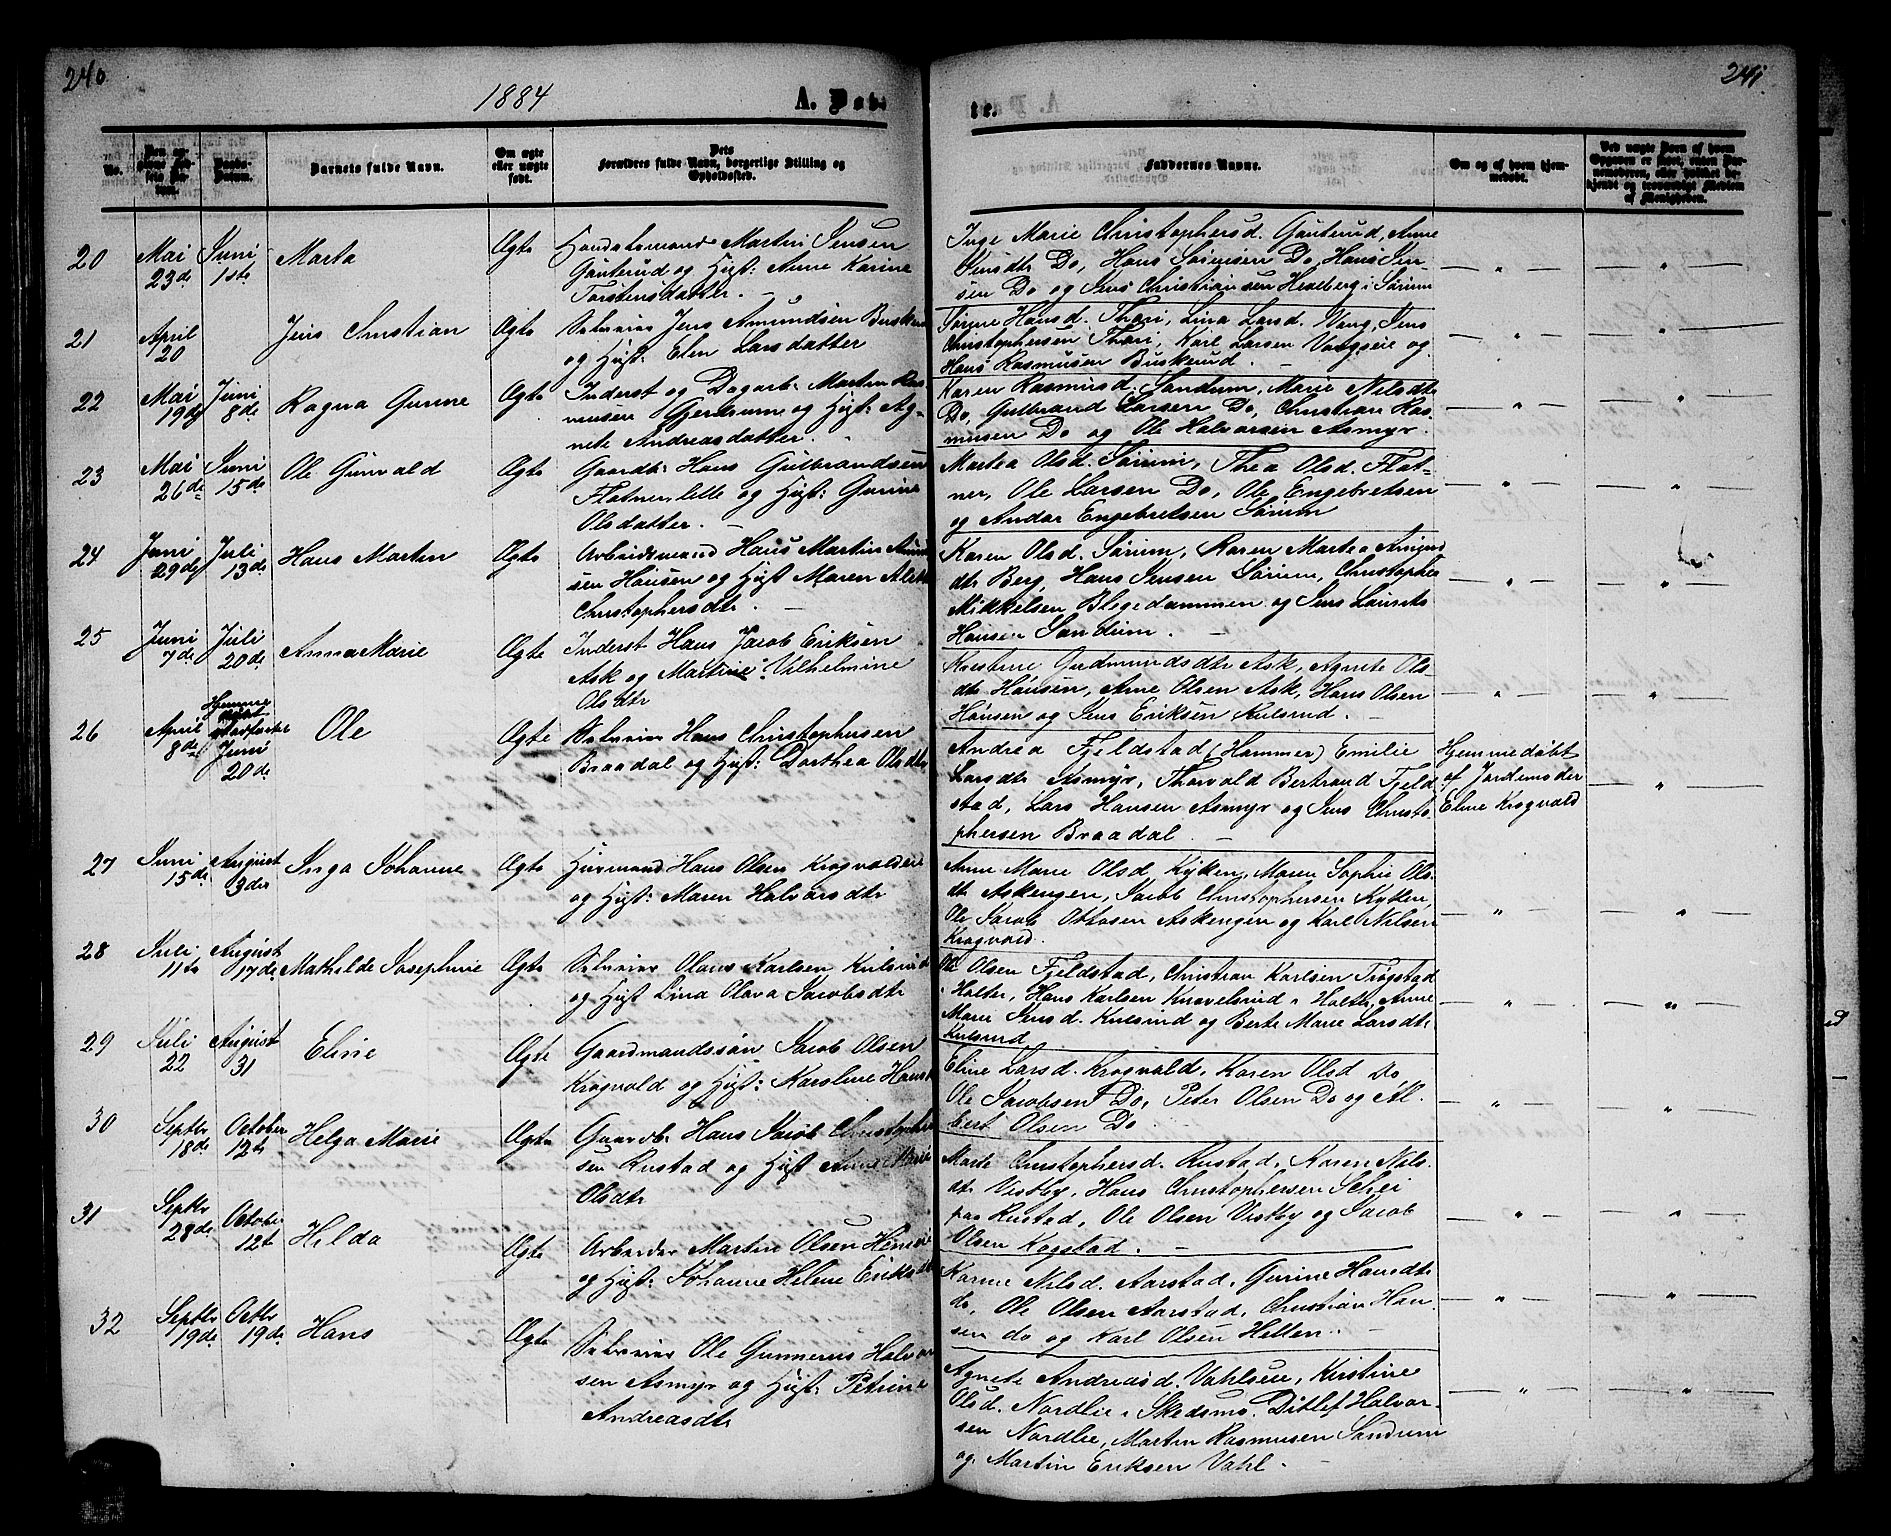 240
1884
A. Døb-
te.
241.
No.
Barnets fulde Navn.
Om ægte
eller uægte
født.
Dets
Forældres fulde Navn, borgerlige Stilling og
Opholdssted.
Faddernes Navne.
Om og af hvem hjem-
medøbt.
20
Mai 23de
Juni 1ste
Marta
Ægte
Martin Jensen
Gauterud og Hust: Anne Karine
Torstensdatter.
Inge Marie Christophersd. Gauterud, Anne
Jensdtr Do, Hans Sørensen Do, Hans Jen-
sen Do og Jens Christiansen Hexeberg i Sørum
21
April 20
Jens Christian
Ægte
Selveier Jens Amundsen
og Hust: Elen Larsdatter
Hansd. Thori, Lina Larsd. Vang, Jens
Christophersen Thori, Karl Larsen og
Hans Rasmusen Buskerud.
22
Mai 19de
Juni 8de
Ragna Gurine
Ægte
Inderst og Dagarb: Martin Ras-
musen Gjerdrum og Hust: Ag-
nete Andreasdatter.
Karen Rasmusd. Sandum, Marie Nilsdtr
Do, Gulbrand Larsen Do, Christian Ras-
musen Do og Ole Halvorsen Asmyr.
23
Mai 26de
Juni 15de
Ole Gunvald
Ægte
Gaardbr: Hans Gulbrandsen
Flatner lille og Hust: Gurine
Olsdatter.
Martea Olsd. Sørum, Thea Olsd. Flat-
ner, Ole Larsen Do, Ole Engebretsen
og Andar Engebretsen Sørum
24
Juni 29de
Juli 13de
Hans Martin
Ægte
Arbeidsmand Hans Martin
sen Hansen og Hust Maren
Christophersdtr.
Karen Olsd. Sørum, Karen Martea
dtr Berg, Hans Jensen Sørum, Christopher
Mikkelsen Blegedammen og Jens Laurits
Hansen Sandum.
25
Juni 7de
Juli 20de
Anna Marie
Ægte
Inderst Hans Jacob Eriksen
Ask og Martine Vilhelmine
Olsdtr
Kristine Gudmundsdtr Ask, Agnete Ols-
dtr Hansen, Arne Olsen Ask, Hans Olsen
Hansen og Jens Eriksen Kulsrud.
26
April 8de
Hjemme
Juni 20de
Ole
Ægte
Selveier Hans Christophersen
Braadal og Hust: Dorthea Olsdtr
Andrea Fjeldstad (Hammer) Emilie
Larsdtr Asmyr, Thorvald Bertrand Fjeld
stad, Lars Hansen Asmyr og Jens Christo
phersen Braadal.
Hjemmedøbt
af Jordemoder
Eline Krogvold
27
Juni 15de
August 3die
Inga Johanne
Ægte
Husmand Hans Olsen Krogvoldeie
og Hust: Maren Halvorsdtr
Anne Marie Olsd Kykken, Maren Sophie Ols-
dtr Askengen, Jacob Christophersen Kykken,
Ole Jacob Ottosen Askengen og Karl Nilsen
Krogvold.
28
Juli 11te
August 17de
Mathilde Josephine
Ægte
Selveier Olaus Karlsen Kulsrud
og Hust Lina Olava Jacobsdtr
Ole Olsen Fjeldstad, Christian Karlsen Trøgstad
i Holter, Hans Karlsen Knavelsrud i Holter, Anne
Marie Jensd. Kulsrud og Berte Marie Larsdtr
Kulsrud
29
Juli 22
August 31
Eline
Ægte
Gaardmandssøn Jacob Olsen
Krogvold og Hust: Karoline
Eline Larsd. Krogvold, Karen Olsd Do
Ole Jacobsen Do, Peter Olsen Do og Al-
bert Olsen Do
30
Septbr 18de
October 12te
Helga Marie
Ægte
Gaardbr. Hans Jacob Christopher
sen Rustad og Hust Anne Marie
Olsdtr
Marte Christophersd. Rustad, Karen Nils-
dtr Vestby, Hans Christophersen Schei
paa Rustad, Ole Olsen Vestby og Jacob
Olsen Kogstad.
31
Septbr 28de
October 12te
Hilda
Ægte
Arbeider Martin Olsen
og Hust: Johanne Helene Eriksdtr
Karine Nilsd. Aarstad, Gurine Hansdtr
do, Ole Olsen Aarstad, Christian Han-
sen do og Karl Olsen Hellen.
32
Septbr 19de
Octbr 19de
Hans
Ægte
Selveier Ole Gunnerius Halvor
sen Asmyr og Hust: Petrine
Andreasdtr
Agnete Andreasd. Vahlseie, Kirstine
Olsd. Nordlie i Skedsmo, Ditlef Halvor-
sen Nordlie, Martin Rasmusen Sandum
og Martin Eriksen Vahl.